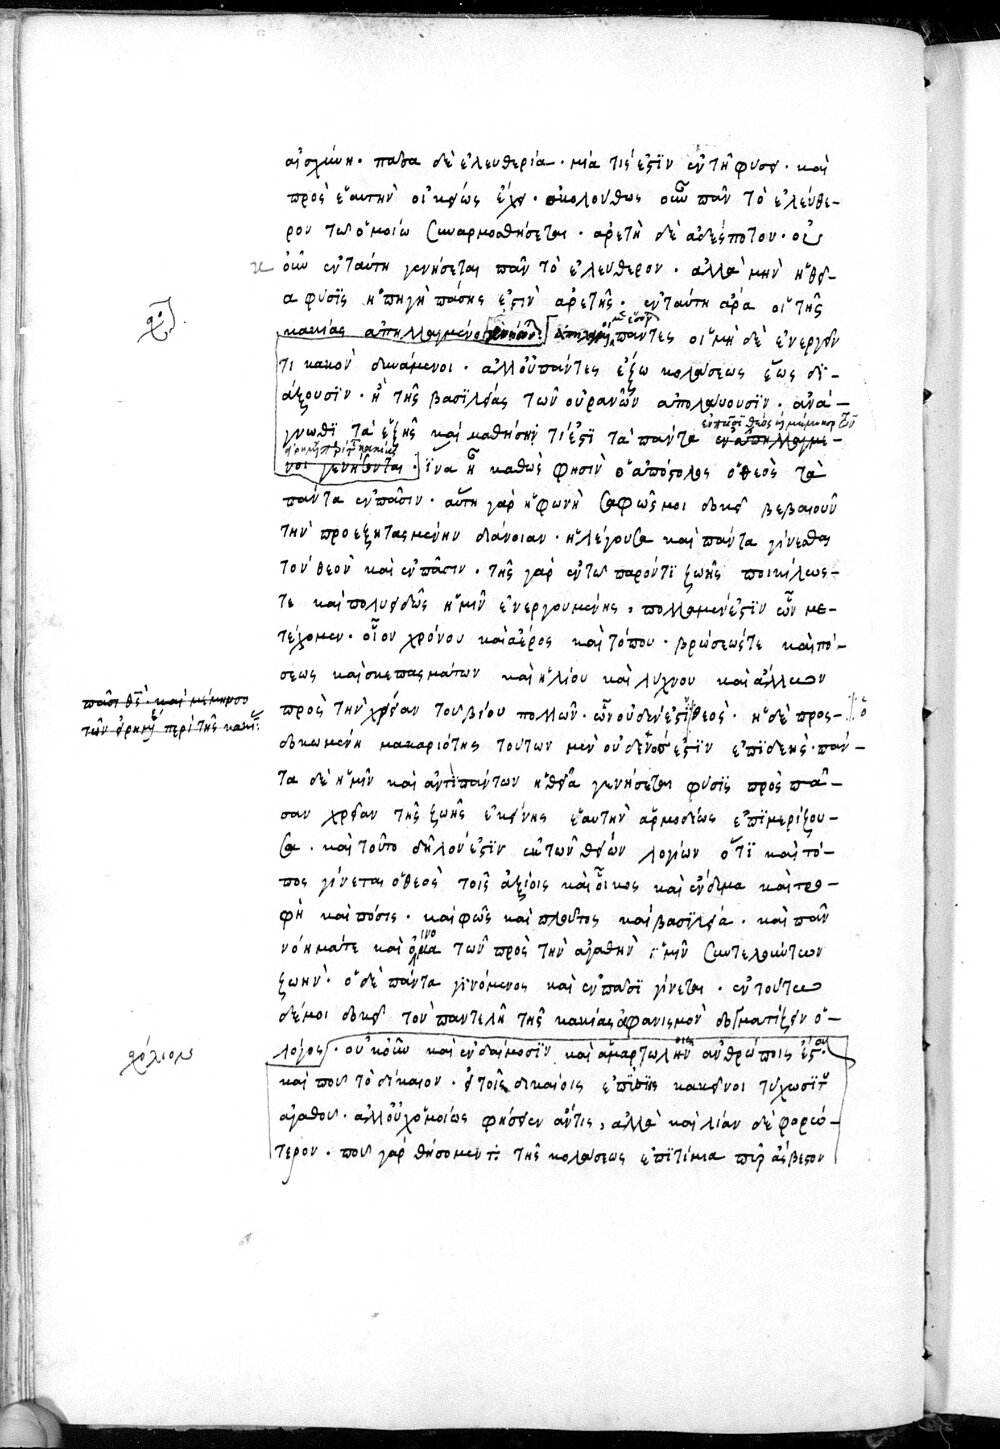 αἰσχύνη· πᾶσα δὲ ἐλευθερία· μία τίς ἐστὶν ἐν τῇ φύσει· καὶ
πρὸς ἑαυτὴν οἰκείως ἔχει· ἀκολούθως οὖν πᾶν τὸ ἐλεύθε-
ρον τῷ ὁμοίῳ συναρμοσθήσεται· ἀρετὴ δὲ ἀδέσποτον·
οὖν ἐν ταύτῃ γενήσεται πᾶν τὸ ἐλεύθερον· ἀλλὰ μὴν ἡ θεί-
α φύσις ἡ πηγὴ πάσης ἐστὶν ἀρετῆς· ἐν ταύτῃ ἄρα οἱ τῆς
κακίας ἀπηλλαγμένοι πάντες οἱ μὴ δὲ ἐνεργεῖν
τι κακὸν δυνάμενοι· ἀλλ' οὐ πάντες ἔξω κολάσεως ἕως δι-
άξουσιν· ἢ τῆς βασιλείας τῶν οὐρανῶν ἀπολαύουσιν· ἀνά-
γνωθι τὰ ἑξῆς καὶ μαθήσῃ τί ἐστι τὰ πάντα ἐν ἀπηλλαγμέ-
νοι γενήσονται· ἵνα ᾖ καθώς φησιν ὁ ἀπόστολος ὁ θεὸς τὰ
πάντα ἐν πᾶσιν· αὕτη γὰρ ἡ φωνὴ σαφῶς μοι δοκεῖ βεβαιοῦν
τὴν προεξητασμένην διάνοιαν· ἡ λέγουσα καὶ πάντα γίνεσθαι
τὸν θεὸν καὶ ἐν πᾶσιν· τῆς γὰρ ἐν τῷ παρόντι ζωῆς ποικίλως-
τε καὶ πολυειδῶς ἡμῖν ἐνεργουμένης, πολλὰ μέν ἐστιν ὧν με-
τέχομεν· οἷον χρόνου καὶ ἀέρος καὶ τόπου· βρώσεώς τε καὶ πό-
σεως καὶ σκεπασμάτων καὶ ἡλίου καὶ λύχνου καὶ ἄλλων
πρὸς τὴν χρείαν τοῦ βίου πολλῶν· ὧν οὐδέν ἐστι θεός· ἡ δὲ προς-
δοκωμένη μακαριότης τούτων μὲν οὐδενός ἐστιν ἐπιδεής· πάν-
τα δὲ ἡμῖν καὶ ἀντὶ πάντων ἡ θεία γενήσεται φύσις πρὸς πᾶ-
σαν χρείαν τῆς ζωῆς ἐκείνης ἑαυτὴν ἁρμοδίως ἐπιμερίζου-
σα· καὶ τοῦτο δῆλόν ἐστιν ἐκ τῶν θείων λογίων ὅτι καὶ τό-
πος γίνεται ὁ θεὸς τοῖς ἀξίοις καὶ οἶκος καὶ ἔνδυμα καὶ τρο-
φὴ καὶ πόσις· καὶ φῶς καὶ πλοῦτος καὶ βασιλεία· καὶ πᾶν
νόημά τε καὶ ὄνομα τῶν πρὸς τὴν ἀγαθὴν ἡμῖν συντελούντων
ζωήν· ὁ δὲ πάντα γινόμενος καὶ ἐν πᾶσι γίνεται· ἐν τούτῳ
δέ μοι δοκεῖ τὸν παντελῆ τῆς κακίας ἀφανισμὸν δογματίζειν ὁ
λόγος· οὐκοῦν καὶ ἐν δαίμοσιν καὶ ἁμαρτωλοῖς ἀνθρώποις
καὶ ποῦ τὸ δίκαιον· εἰ τοῖς δικαίοις ἐπίσης κἀκεῖνοι τύχωσι τοῦ
ἀγαθοῦ· ἀλλ' οὐχ ὁμοίως φήσειεν ἄν τις, ἀλλὰ καὶ λίαν δὲ φορεώ-
τερον· ποῦ γὰρ θήσομεν τῆς κολάσεως ἐπιτίμια πῦρ ἄσβεστον
πᾶσι θς· καὶ μέμνησο
τῶν εἰρημένων περὶ τῆς κακίας
σχόλιον